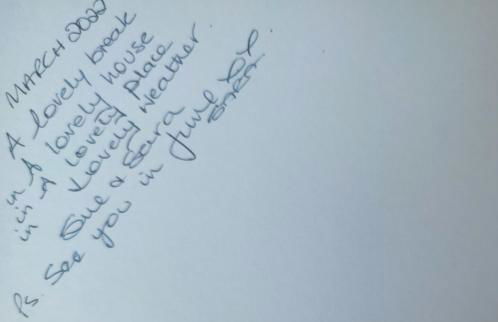 MARCH 2022
A lovely break
in A lovely house
in A Lovely Place
Lovely Weather.
Sue & Sara
Ps. See you in June